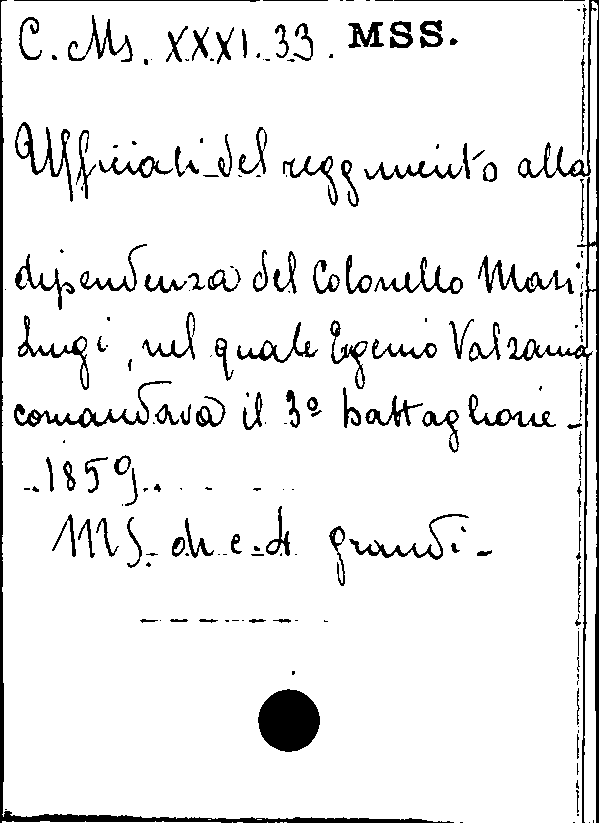 C. Ms. XXXI. 33. MSS.
Ufficiali del reggimento alla
dipendenza del Colonello Masi
Luigi, nel quale Egenio Valzania
comandava il 3º battaglione -
1859.
MS. di c. 4 grandi -